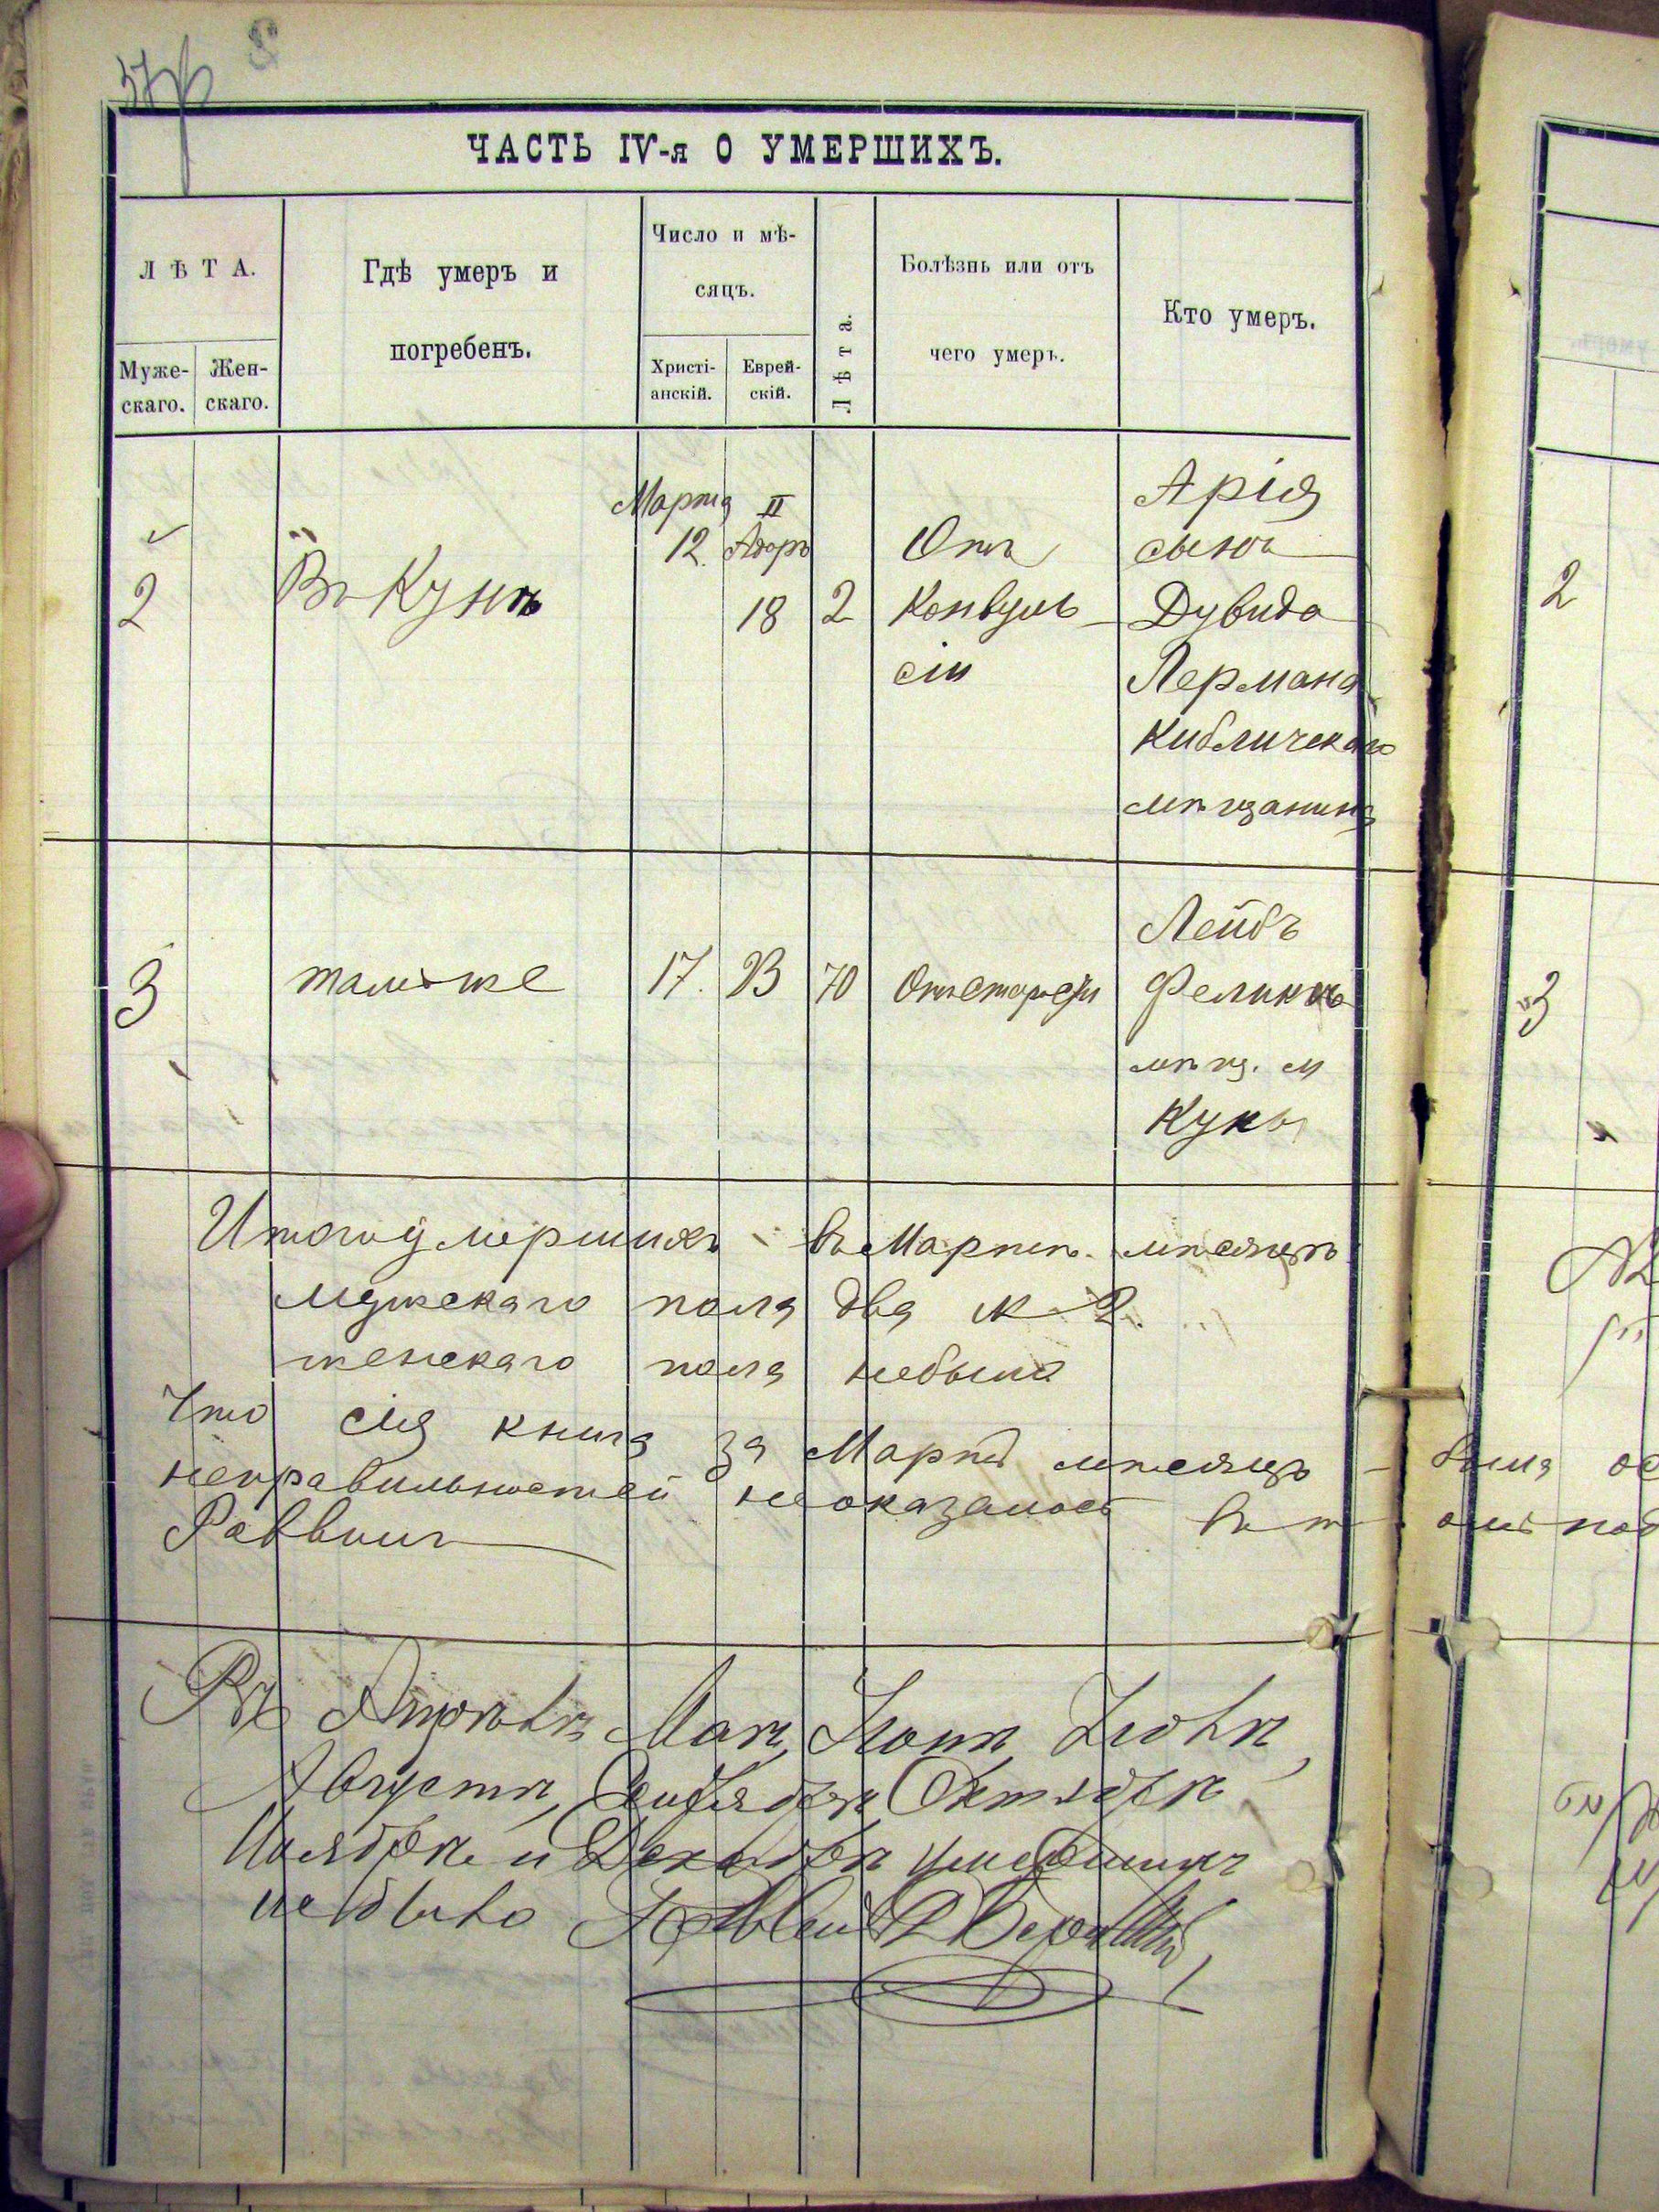 57
ЧАСТЬ IV-я О УМЕРШИХЪ.
ЛѢТА.
Муже-
скаго.
Жен-
скаго.
Гдѣ умеръ и
погребенъ.
Число и мѣ-
сяцъ.
Христі-
анскій.
Еврей-
скій.
Лѣта.
Болѣзнь или отъ
чего умеръ.
Кто умеръ.
2
Въ Кунѣ
Марта
12.
II
Адаръ
18
2
Отъ
Конвуль
сіи
Арія
сынъ
Дувида
Лермана
Кибличскаго
мѣщанина
2
3
тамъ же
17.
23
70
Отъ старости
Лейбъ
Феликъ
мѣщ. м
Куны
3
Итого умершихъ въ Мартѣ мѣсяцѣ
мужскаго пола два м 2.
женскаго пола небыло
Что сія книга за Мартъ мѣсяцъ – была
неправильностей неоказалось въ т
Раввинъ
Въ Апрѣлѣ Маѣ, Іюнѣ, Іюлѣ,
Августѣ, Сентябрѣ, Октябрѣ
Ноябрѣ и Декабрѣ умершихъ
небыло Раввинъ